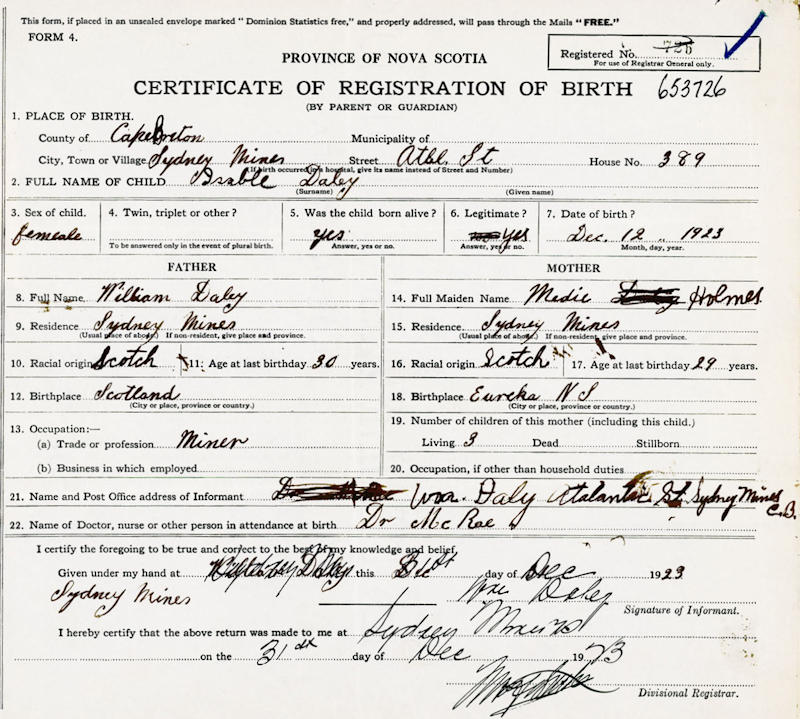 This form, if placed in an unsealed envelope marked "Dominion Statistics free," and properly addressed, will pass through the Mails "FREE."
FORM 4.
Registered No. 726
For use of Registrar General only.
PROVINCE OF NOVA SCOTIA
CERTIFICATE OF REGISTRATION OF BIRTH 653726
(BY PARENT OR GUARDIAN)
1. PLACE OF BIRTH.
County of Cape Breton Municipality of
City, Town or Village Sydney Mines Street Atl. St House No. 389
(If birth occurred in a hospital, give its name instead of Street and Number)
2. FULL NAME OF CHILD Isable Daley
(Surname) (Given name)
3. Sex of child. 4. Twin, triplet or other? 5. Was the child born alive? 6. Legitimate? 7. Date of birth?
femeale yes yes Dec. 12 " 1923
To be answered only in the event of plural birth. Answer, yes or no. Answer, yes or no. Month, day, year.
FATHER MOTHER
8. Full Name William Daley 14. Full Maiden Name Medie Holmes
9. Residence Sydney Mines 15. Residence Sydney Mines
(Usual place of abode) (If non-resident, give place and province. (Usual place of abode) (If non-resident, give place and province.
10. Racial origin Scotch 11. Age at last birthday 30 years. 16. Racial origin Scotch 17. Age at last birthday 29 years.
12. Birthplace Scotland 18. Birthplace Eureka N S
(City or place, province or country.) (City or place, province or country.)
13. Occupation:— 19. Number of children of this mother (including this child.)
(a) Trade or profession Miner Living 3 Dead Stillborn
(b) Business in which employed 20. Occupation, if other than household duties
21. Name and Post Office address of Informant Wm. Daly Atalantic St. Sydney Mines C.B.
22. Name of Doctor, nurse or other person in attendance at birth Dr McRae
I certify the foregoing to be true and correct to the best of my knowledge and belief.
Given under my hand at this day of Dec 1923
Sydney Mines Wm Daley
Signature of Informant.
I hereby certify that the above return was made to me at Sydney Mines
on the 31st day of Dec 1923
Divisional Registrar.